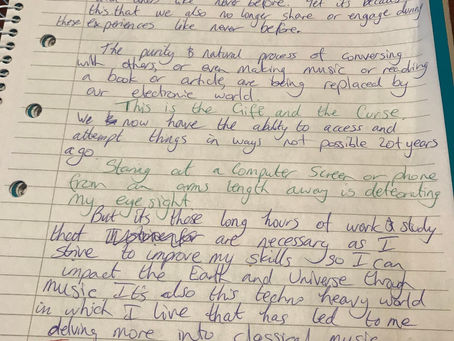 like never before. Yet its because
this that we also no longer share or engage during
these experiences like never before.
The purity & natural process of conversing
with others, or even making music or reading
a book or article, are being replaced by
our electronic world
This is the Gift and the Curse.
We now have the ability to access and
attempt things in ways not possible 20+ years
ago.
Staring at a Computer Screen or phone
from an arms length away is deteorating
my eyesight
But its those long hours of work & study
that are necessary as I
strive to improve my skills so I can
impact the Earth and Universe through
music. It's also this techno heavy world
in which I live that has led to me
delving more into classical music